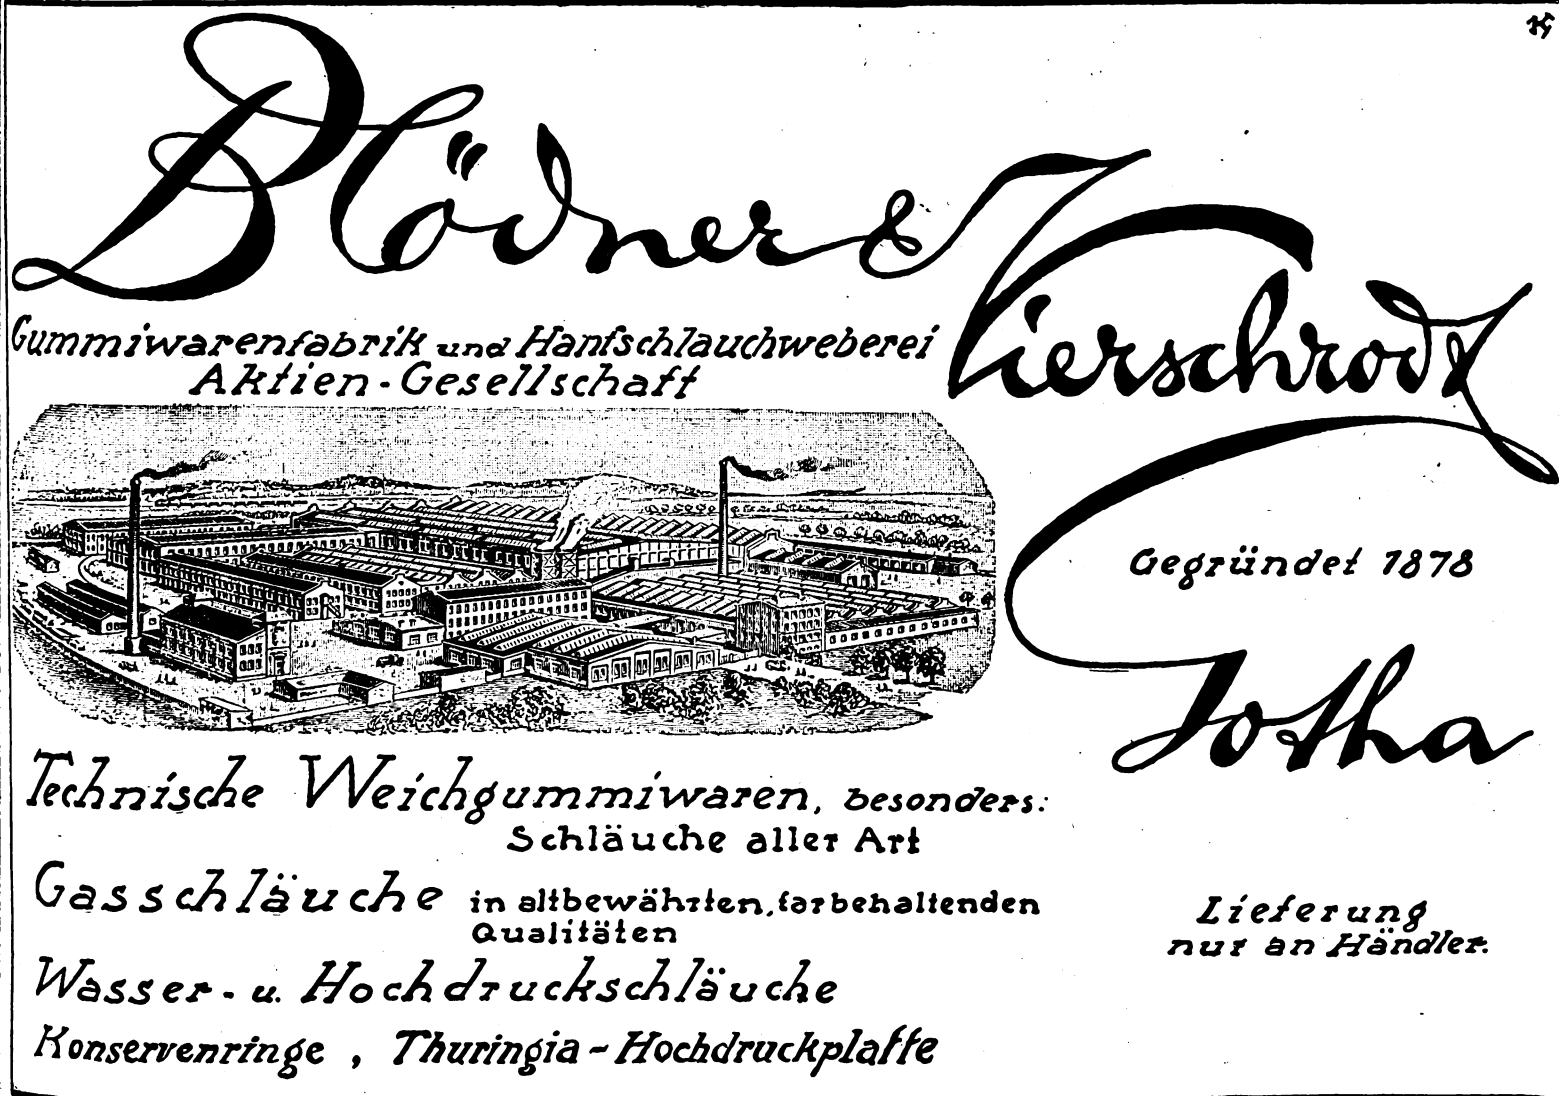 Blödner & Vierschrodt
Gummiwarenfabrik und Hanfschlauchweberei
Aktien-Gesellschaft
Gegründet 1878
Gotha
Technische Weichgummiwaren, besonders:
Schläuche aller Art
Gasschläuche in altbewährten, farbehaltenden
Qualitäten
Wasser- u. Hochdruckschläuche
Konservenringe, Thuringia-Hochdruckplatte
Lieferung
nur an Händler.